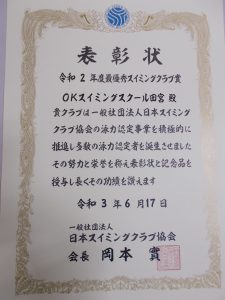 表彰状
令和２年度最優秀スイミングクラブ賞
OKスイミングスクール田宮 殿
貴クラブは一般社団法人日本スイミング
クラブ協会の泳力認定事業を積極的に
推進し多数の泳力認定者を誕生させました
その努力と栄誉を称え表彰状と記念品を
授与し長くその功績を讃えます
令和３年６月１７日
一般社団法人
日本スイミングクラブ協会
会長 岡本 實